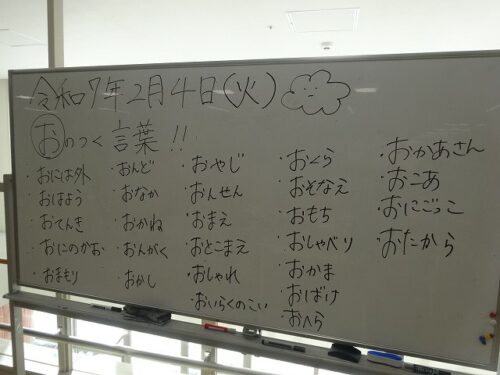 令和7年2月4日(火)
おのつく言葉!!
・おには外
・おはよう
・おてんき
・おにのかお
・おまもり
・おんど
・おなか
・おかね
・おんがく
・おかし
・おやじ
・おんせん
・おまえ
・おとこまえ
・おしゃれ
・おいらくのこい
・おくら
・おそなえ
・おもち
・おしゃべり
・おかま
・おばけ
・おへら
・おかあさん
・おこあ
・おにごっこ
・おたから